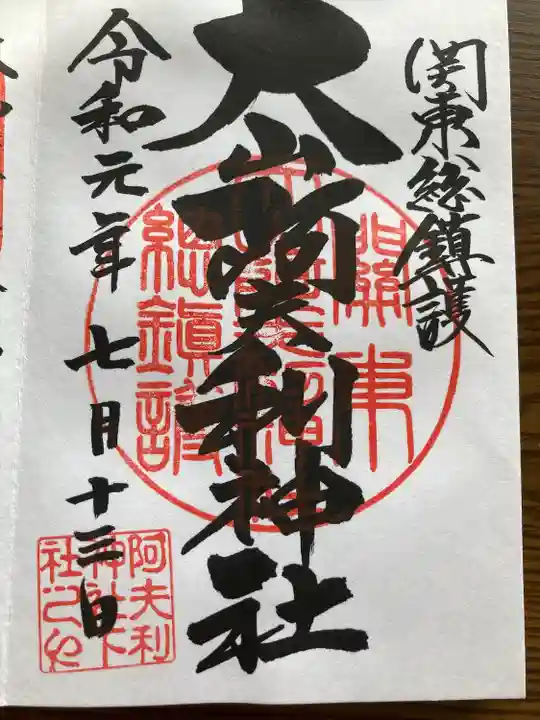 関東総鎮護
大山阿夫利神社
令和元年七月十三日
關東
總鎮護
阿夫利
神社下
社